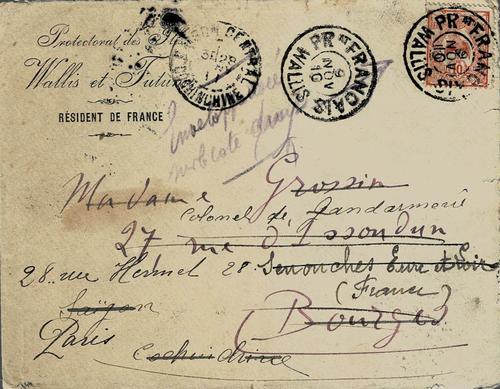 Protectorat des Iles
Wallis et Futuna
RÉSIDENT DE FRANCE
SAIGON CENTRAL
COCHINCHINE
PR ᵗ FRANÇAIS WALLIS
9
NOV
10
PR ᵗ FRANÇAIS WALLIS
9
NOV
10
Enveloppe
Madame Grossin
Colonel de Gendarmerie
27 rue d'Issoudun
28 rue Hermel 28 Senonches Eure et Loir
(France)
Saïgon
Bourges
Paris
Cochinchine